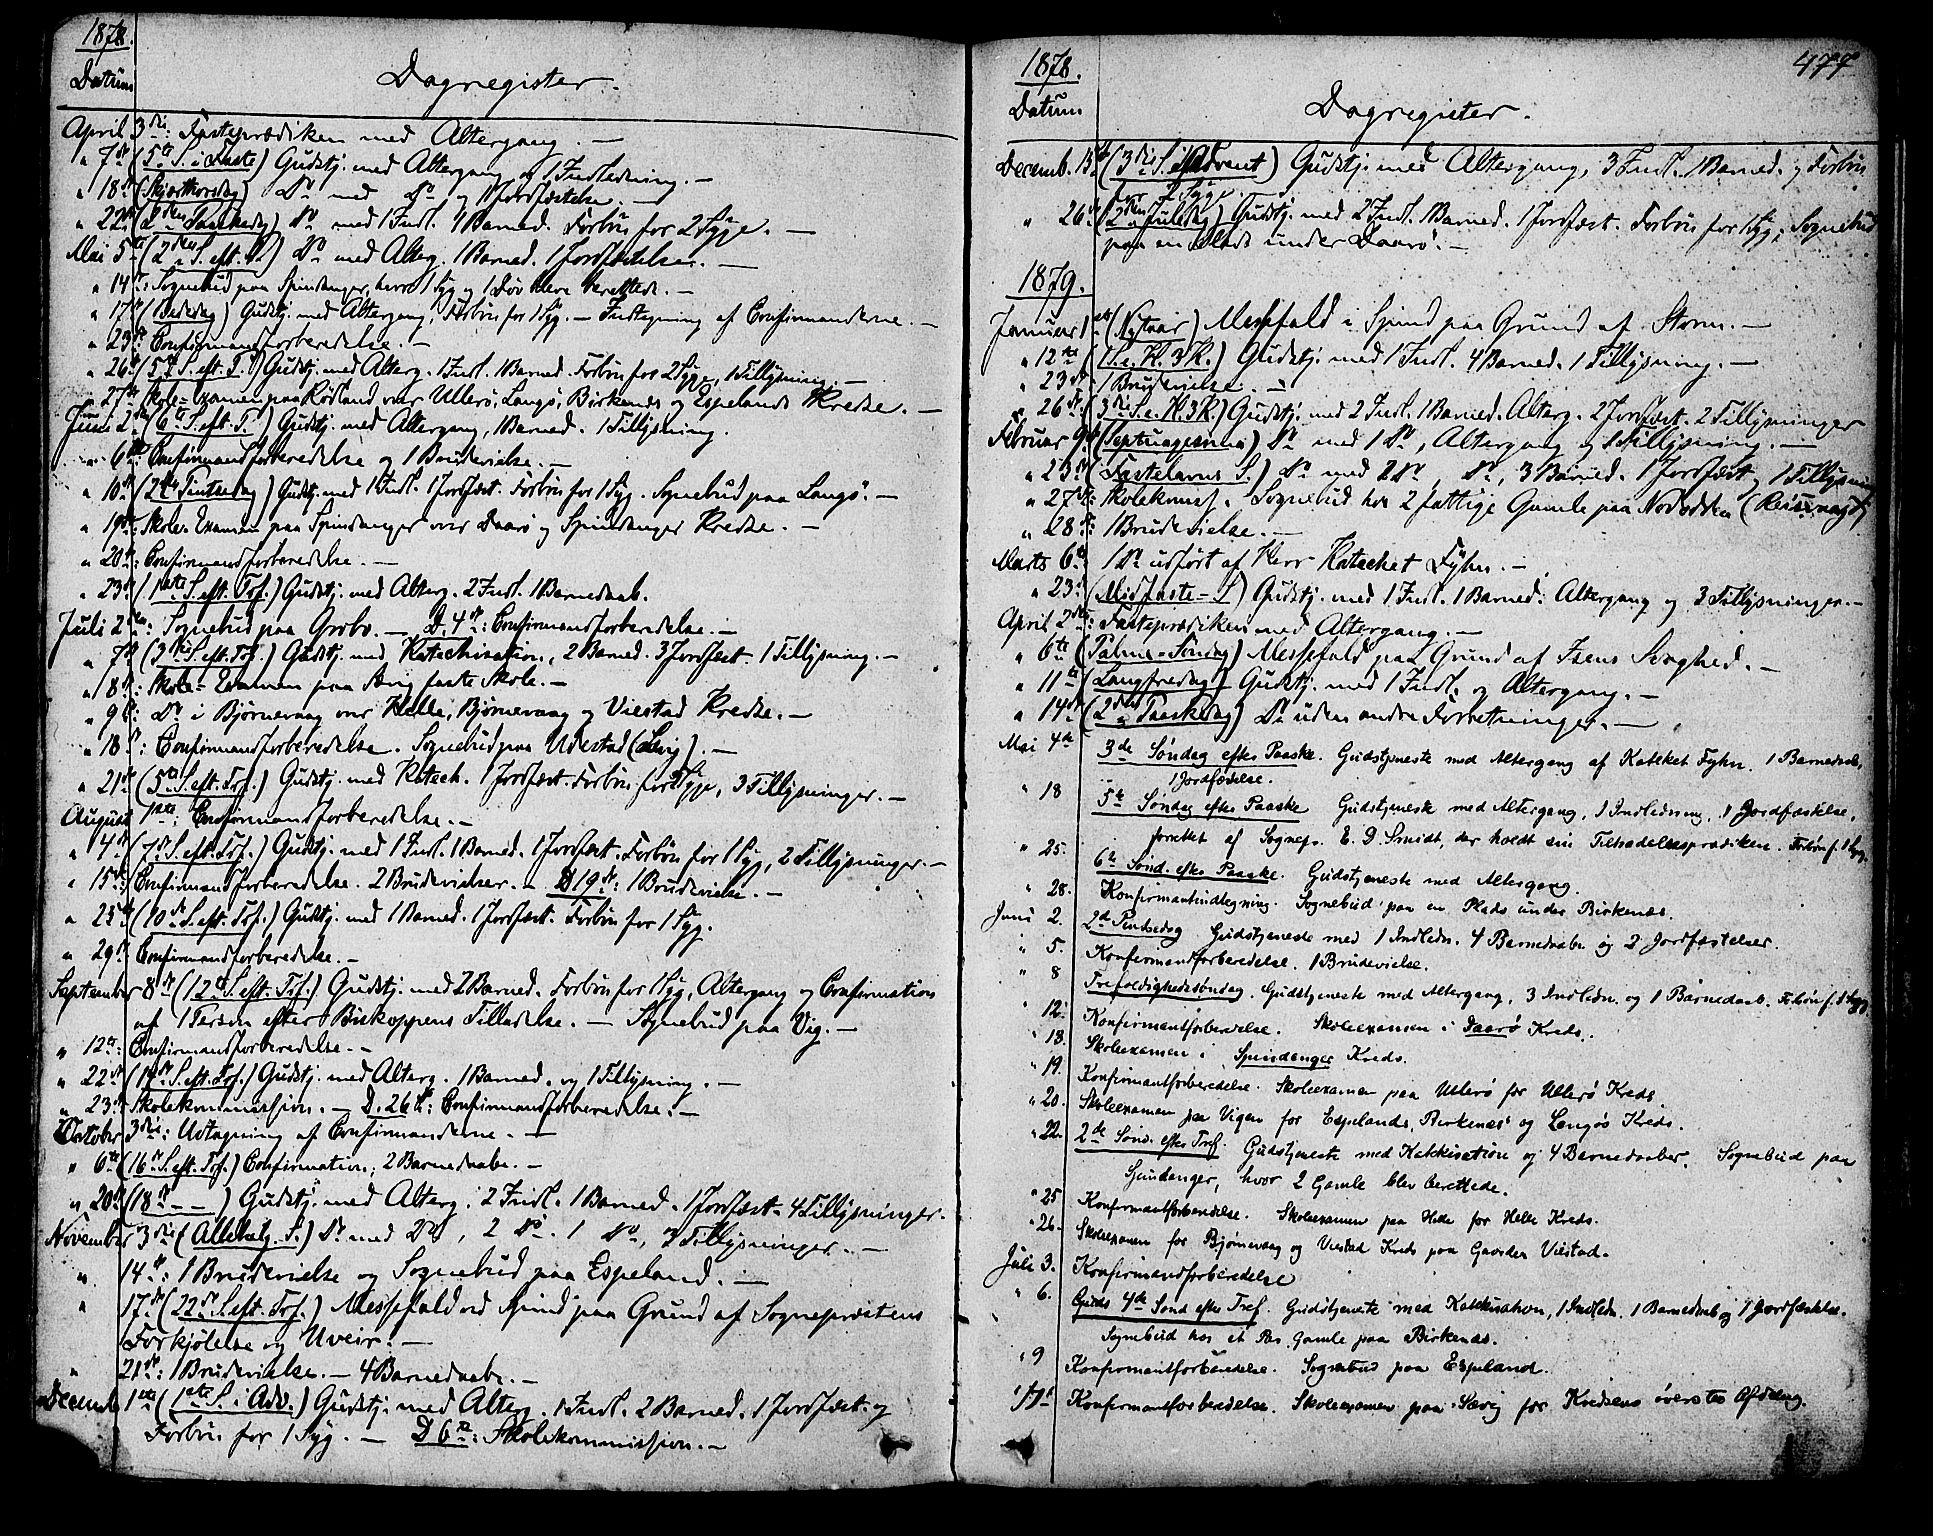 1878.
Datum
Dagregister.
April 3die: Fasteprædiken med Altergang. —
" 7de (5te S. i Faste) Gudstj. med Altergang og 1 Indledning. —
" 18de (Skjærthorsdag) Do med Do og 1 Jordfæstelse. —
" 22de (2den Paaskedag) Do med 1 Indl. 1 Barned. Forbøn for 2 Syge. —
Mai 5te (2den S. eft. P.) Do med Alterg. 1 Barned. 1 Jordfæstelse. —
" 14de: Sognebud paa Spindanger, hvor 1 Syg og 1 Døv bleve berettede. —
" 17de (Bededag) Gudstj. med Altergang, Forbøn for 1 Syg. — Indtegning af Confirmanderne. —
" 23de Confirmandforberedelse. —
" 26de (5te S. eft. P.) Gudstj. med Alterg. 1 Indl. 1 Barned. Forbøn for 2 Syge, 1 Tillysning. —
" 27de Skole-Examen paa Rødland over Ullerø, Langø, Birkenes og Espelands Kredse. —
Juni 2den (6te S. eft. P.) Gudstj. med Altergang, 1 Barned. 1 Tillysning.
" 6te: Confirmandforberedelse og 1 Brudevielse. —
" 10de (2den Pintsedag) Gudstj. med 1 Indl. 1 Jordfæst. Forbøn for 1 Syg. Sognebud paa Langø. —
" 19de: Skole-Examen paa Spindanger over Daarø og Spindanger Kredse. —
" 20de: Confirmandforberedelse. —
" 23de (1ste S. eft. Tref.) Gudstj. med Alterg. 2 Indl. 1 Barnedaab.
Juli 2den: Sognebud paa . — D. 4de: Confirmandforberedelse. —
" 7de (3die S. eft. Tref.) Gudstj. med Katechisation, 2 Barned. 3 Jordfæst. 1 Tillysning. —
" 8de: Skole-Examen paa faste Skole. —
" 9de: Do i Bjørnevaag over Helle, Bjørnevaag og Viestad Kredse. —
" 18de: Confirmandforberedelse. Sognebud paa Udestad . —
" 21de (5te S. eft. Tref.) Gudstj. med Katech. 1 Jordfæst. Forbøn for Syge, 3 Tillysninger. —
August 1ste: Confirmandforberedelse. —
" 4de (7de S. eft. Tref.) Gudstj. med 1 Indl. 1 Barned. 1 Jordfæst. Forbøn for 1 Syg, 2 Tillysninger. —
" 15de: Confirmandforberedelse. 2 Brudevielser. — D. 19de: 1 Brudevielse. —
" 25de (10de S. eft. Tref.) Gudstj. med 1 Barned. 1 Jordfæst. Forbøn for 1 Syg.
" 29de: Confirmandforberedelse. —
September 8de (12te S. eft. Tref.) Gudstj. med 2 Barned. Forbøn for 1 Syg, Altergang og Confirmation
af 1 Person efter Biskoppens Tilladelse. — Sognebud paa Vig. —
" 12te: Confirmandforberedelse. —
" 22de (14de S. eft. Tref.) Gudstj. med Alterg. 1 Barned. og 1 Tillysning. —
" 23de: Skolekommission. — D. 26de: Confirmandforberedelse. —
October 3die: Udtagning af Confirmanderne. —
" 6te (16de S. eft. Tref.) Confirmation; 2 Barnedaabe. —
" 20de (18de — —) Gudstj. med Alterg. 2 Indl. 1 Barned. 1 Jordfæst. 4 Tillysninger.
November 3die (Allehelg. S.) Do med Do, 2 Do. 1 Do, 3 Tillysninger. —
" 14de: 1 Brudevielse og Sognebud paa Espeland. —
" 17de (22de S. eft. Tref.) Messefald ved Spind paa Grund af Sognepræstens
Forkjølelse og Uveir. —
" 21de: 1 Brudevielse. — 4 Barnedaabe. —
Decemb. 1ste (1ste S. i Adv.) Gudstj. med Alterg. 1 Indl. 2 Barned. 1 Jordfæst. og
Forbøn for 1 Syg. — D. 6te: Skolekommission. —
1878.
477
Datum
Dagregister.
Decemb. 15de (3die S. i Advent) Gudstj. med Altergang, 3 Indl. 1 Barned. og Forbøn
for 2 Syge. —
" 26de (2den Juledag) Gudstj. med 2 Indl. 1 Barned. 1 Jordfæst. Forbøn for 1 Syg; Sognebud
paa en Plads under Daarø. —
1879.
Januar 1ste (Nytaar) Messefald i Spind paa Grund af Storm. —
" 12te (1 S. e. H. 3 K.) Gudstj. med 1 Indl. 4 Barned. 1 Tillysning. —
" 23de 1 Brudevielse. —
" 26de (3die S. e. H. 3 K.) Gudstj. med 2 Indl. 1 Barned. Alterg. 2 Jordfæst. 2 Tillysninger
Februar 9de (Septuagesima) Do med 1 Do, Altergang og 1 Tillysning. —
" 23de (Fastelavns S.) Do med 2 Do, Do, 3 Barned. 1 Jordfæst. og 1 Tillysning
" 27de: Skolekomis. Sognebud hos 2 fattige Gamle paa Nordodden
" 28de: 1 Brudevielse. —
Marts 6te: 1 Do udført af Herr Katechet Fyhn. —
" 23de (Midfaste-S) Gudstj. med 1 Indl. 1 Barned. Altergang og 3 Tillysninger. —
April 2den: Fasteprædiken med Altergang. —
" 6te (Palme-Søndag) Messefald paa Grund af Isens Svaghed. —
" 11te (Langfredag) Gudstj. med 1 Indl. og Altergang. —
" 14de (2den Paaskedag) Do uden andre Forretninger. —
Mai 4de 3de Søndag efter Paaske. Gudstjeneste med Altergang af Kateket Fyhn. 1 Barnedaab,
1 Jordfæstelse.
" 18 5te Søndag efter Paaske Gudstjeneste med Altergang, 1 Indledning, 1 Jordfæstelse,
forrettet af Sognepr. E. D. Smidt, der holdt sin Tiltrædelsesprædiken. Forbøn f. 1 Syg.
" 25. 6te Sønd. efter Paaske. Gudstjeneste med Altergang.
" 28. Konfirmantindtegning. Sognebud paa en Plads under Birkenæs.
Juni 2. 2d Pindsedag Gudstjeneste med 1 Indledn. 4 Barnedaabe og 2 Jordfæstelser.
" 5. Konfirmandforberedelse. 1 Brudevielse.
" 8 Trefoldighedssøndag. Gudstjeneste med Altergang, 3 Indledn. og 1 Barnedaab. Forbøn f. 1 Syg.
" 12. Konfirmantforberedelse. Skoleexamen i Daarø Kreds.
" 13. Skoleexamen i Spindanger Kreds.
" 19. Konfirmantforberedelse. Skoleexamen paa Ullerø for Ullerø Kreds.
" 20. Skoleexamen paa Vigen for Espelands, Birkenæs og Langøs Kreds.
" 22. 2de Sønd. efter Tref. Gudstjeneste med Katekisation og 4 Barnedaaber. Sognebud paa
Spindanger, hvor 2 Gamle blev berettede.
" 25 Konfirmantforberedelse. Skoleexamen paa Helle for Helle Kreds.
" 26. Skoleexamen for Bjørnevaag og Viestad Kreds paa Gaarden Viestad.
Juli 3. Konfirmandforberedelse
" 6. 4de Sønd efter Tref. Gudstjeneste med Katekisation, 1 Indledn. 1 Barnedaab og 1 Jordfæstelse.
Sognebud hos et Par Gamle paa Birkenæs.
" 9 Konfirmantforberedelse. Sognebud paa Espeland.
" Konfirmantforberedelse. Skoleexamen paa Særig for Kredsens øverste Afdeling.